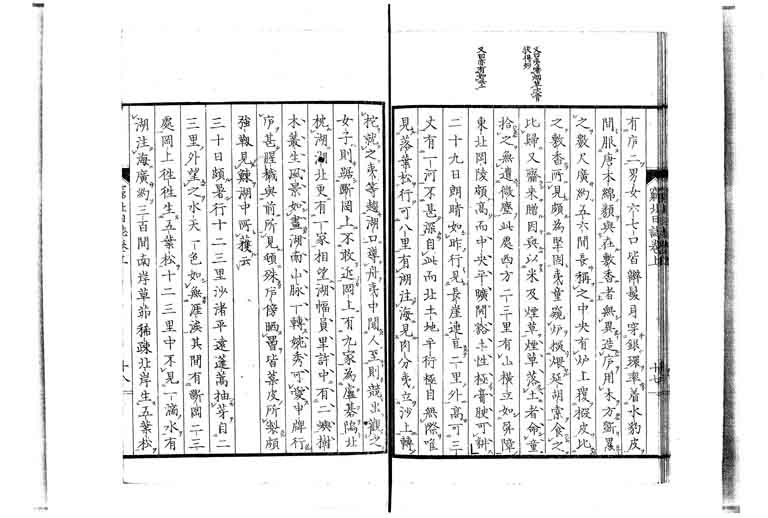 有庐二男女六七口皆辮髮耳穿銀環率着水豹皮
間服唐木綿類與在敷香者無異造庐用木方
之數尺廣約五六間長稱之中央有炉上覆椴皮比
之敷香所見頗為堅固夷童
比歸又齎来贈因與以米及煙草煙草落土者命童
拾之無遺微塵此處西方二十三里有山横立如屏障
東北岡陵頗高而中央平曠開豁土性極膏腴可耕
二十九日朗晴如昨行見長崖連亘二里外高可三
丈有一河不甚深自此而北土地平衍極目無際唯
見落葉松行可八里有湖注海見肉分夷立沙上轉
挖就之夷等越湖口導舟夷中聞人至則競出觀之
女子則踞斷岡上不敢近岡上有九家為廬碁臨北
枕湖湖北更有一家相望湖幅員里許中有二嶼樹
木叢生風景如畫湖南山脉一轉婉秀可愛中牌行
庐甚腥穢與前所見頓殊庐傍晒罾皆葉皮所製頗
強靱見鰊湖中所獲云
三十日頗暑行十二三里沙渚平遠蓬蒿抽芽自二
三里外望之水天一色如無涯涘其間有斷岡二三
處岡上往往生五葉松十二三里中不見一滴水有
湖注海廣約三百間南岸草茆稀疎北岸生五葉松